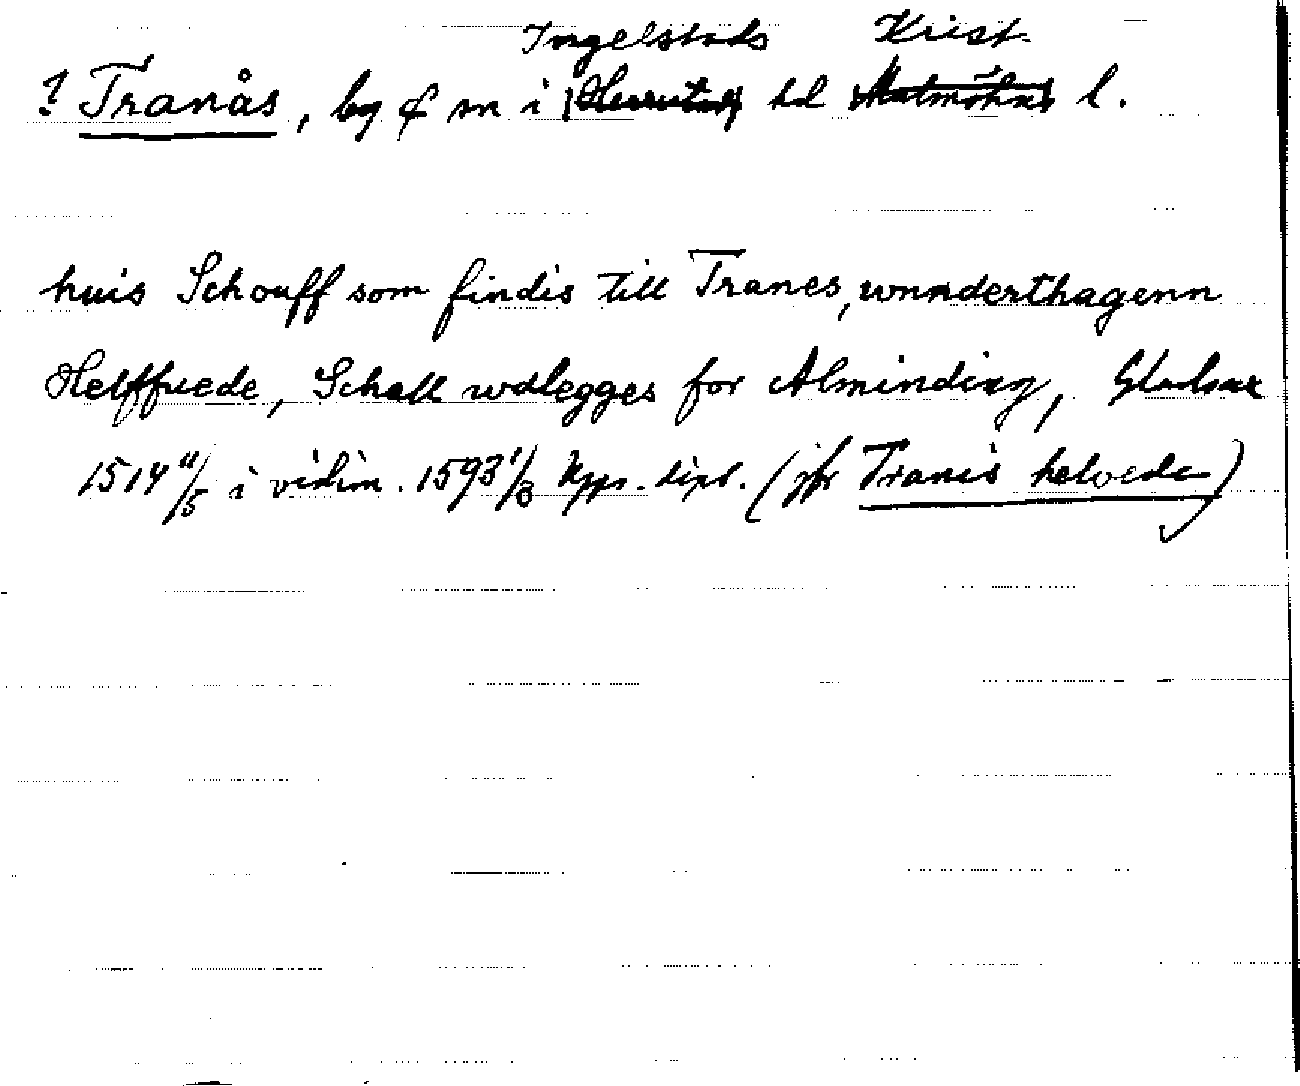 Ingelstads Krist.
? Tranås, by & sn i Herrestads hd Malmöhus l.
huis Schouff som findis till Tranes, wnnderthagenn
Helffuede, Schall wdlegges for Alminding, Gladsax
1514 11/5 i vidim. 1593 1/8 Kpps. dipl. (jfr Tranis helvede)